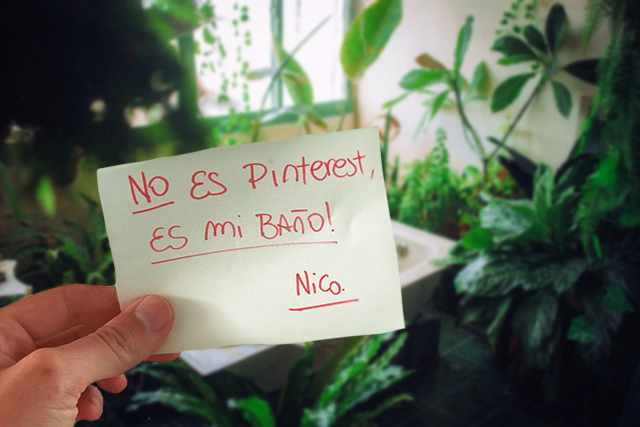 NO ES Pinterest,
ES mi BAÑO!
Nico.